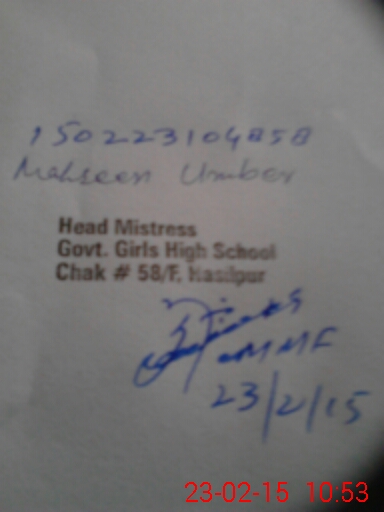 150223104858
Mahseen Umber
Head Mistress
Govt. Girls High School
Chak # 58/F, Hasilpur
23/2/15
23-02-15 10.53